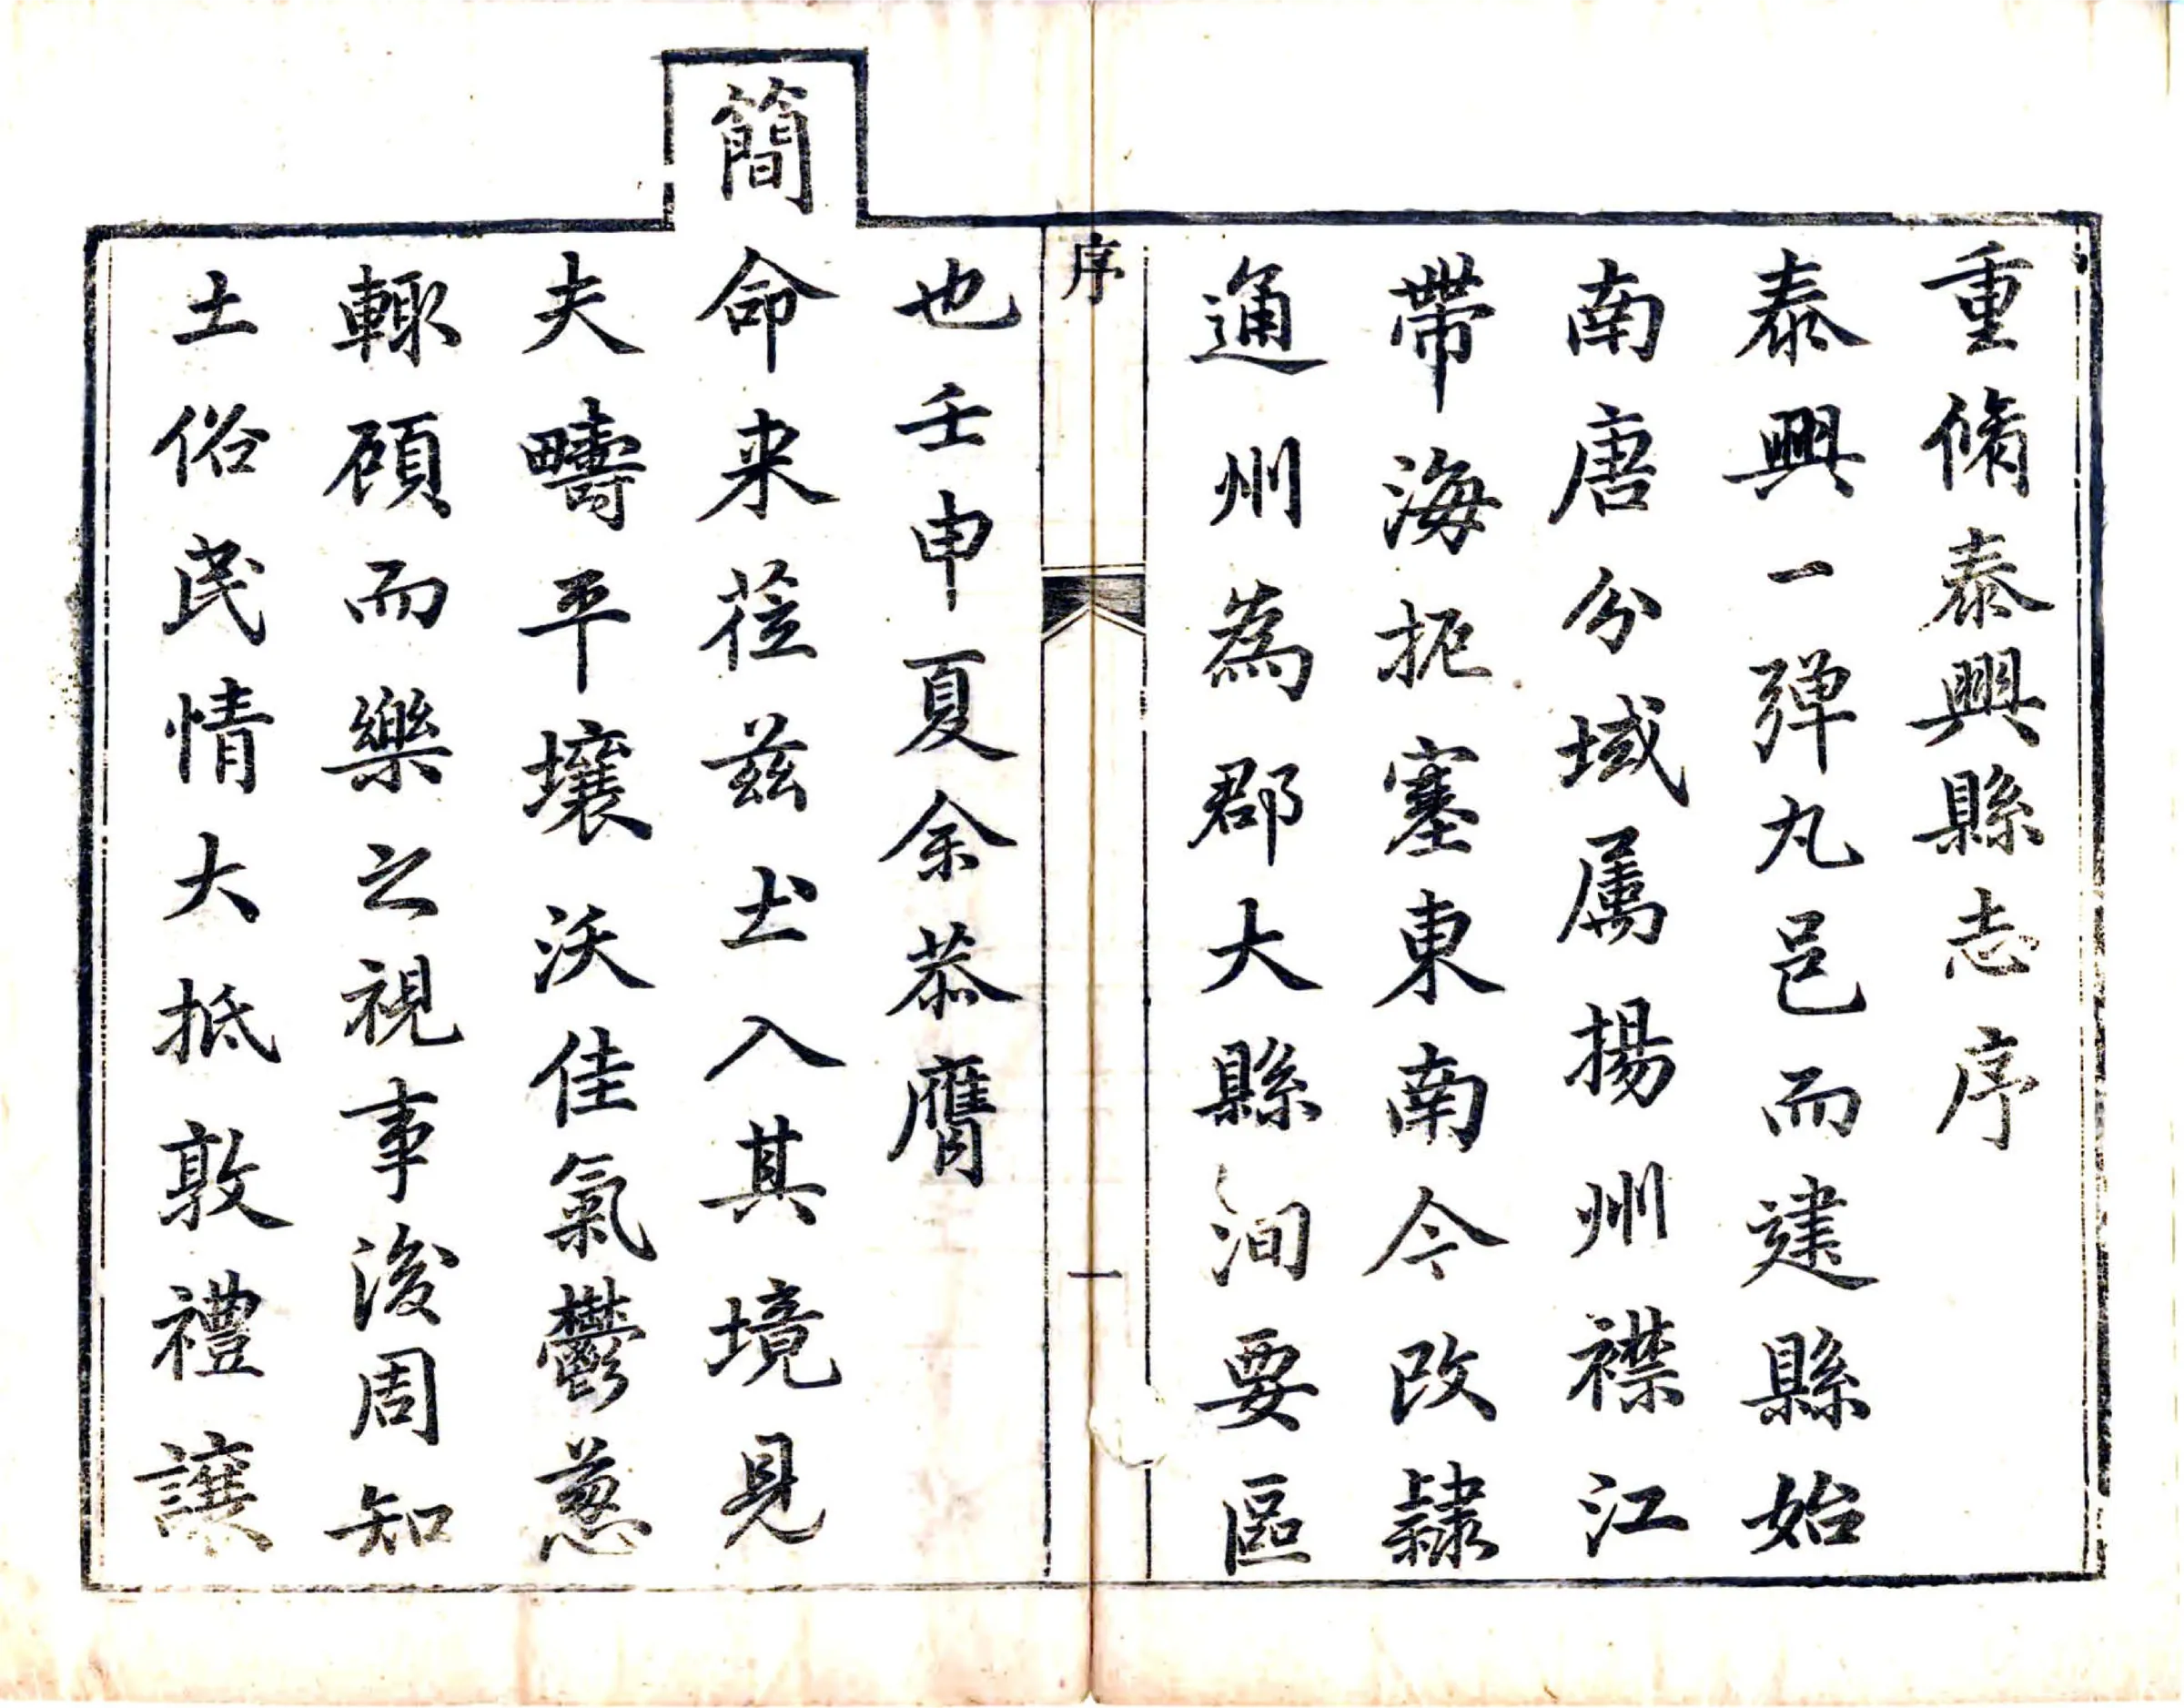 重脩泰興縣志序
泰興一彈丸邑而建縣始
南唐分域属揚州襟江
帶海扼塞東南今改隸
通州為郡大縣洵要區
序
一
也壬申夏余恭膺
簡命来莅兹𡈽入其境見
夫疇平壤沃佳氣鬱蔥
輙顧而樂之視事後周知
土俗民情大抵敦禮讓